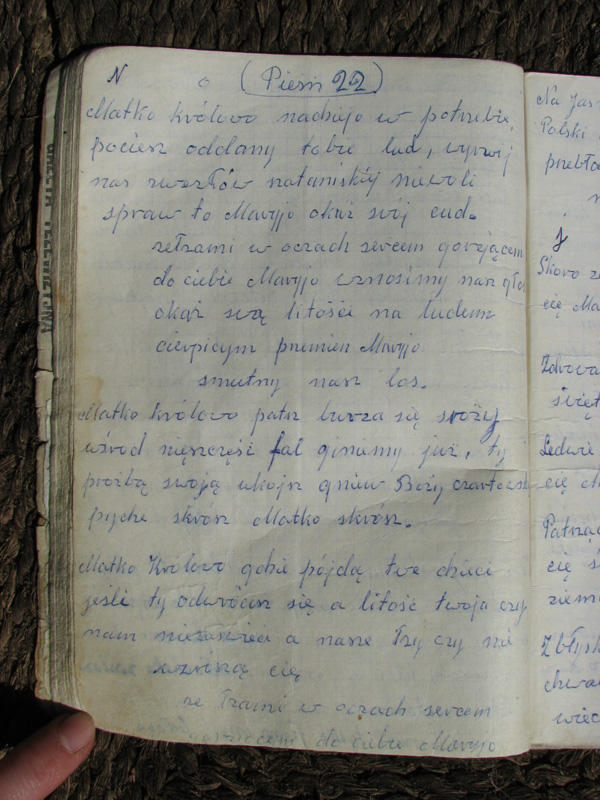 N o (Pieśń 22)
Matko królowo nadziejo w potrzebie,
pociesz oddany tobie lud, wyrwij
nas zwęzłów szatańskiej niewoli
spraw to Maryjo okaż swój cud.
ze łzami w oczach sercem gorejącem
do ciebie Maryjo wznosimy nasz głos
okaż swą litość na ludem
cierpicym przemien Maryjo
smutny nasz los.
Matko królowo patrz burza się sroży
wśród nieszczęść fal giniemy już, ty
prożbą swoją ukojsz gniew Boży
pychę skrósz Matko skrósz.
Matko Królowo gdzie pójdą twe dzieci
jeśli ty odwrócisz się a litość twoja czy
nam niezaświeci a nasze łzy czy nie
wzruszą cię
ze łzami w oczach sercem
gorejącem do ciebie Maryjo
Na Jas
Polski
przebło
Skoro z
cię Ma
Zdrowa
święt
Ledwie
cię M
Patrzą
cię ś
ziemi
Z błysk
chwa
więc